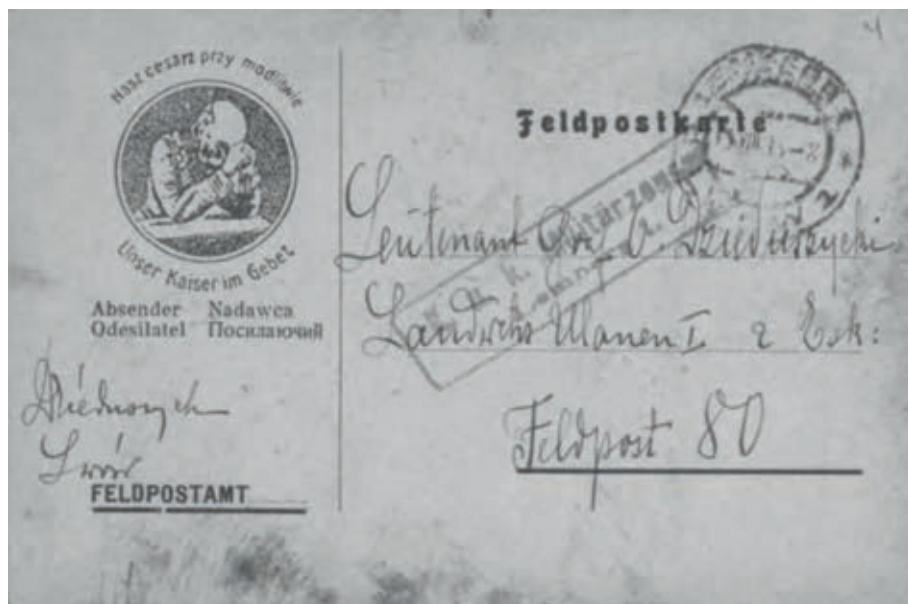 Nasz cesarz przy modlitwie
Unser Kaiser im Gebet
Absender Nadawca
Odesilatel Посилаючий
Lwów
FELDPOSTAMT
Feldpostkarte
LEMBERG
k. u. k. Militärzensur
Leutenant Gr. Dzieduszycki
Landwehr Ulanen I 2 Esk:
Feldpost 80